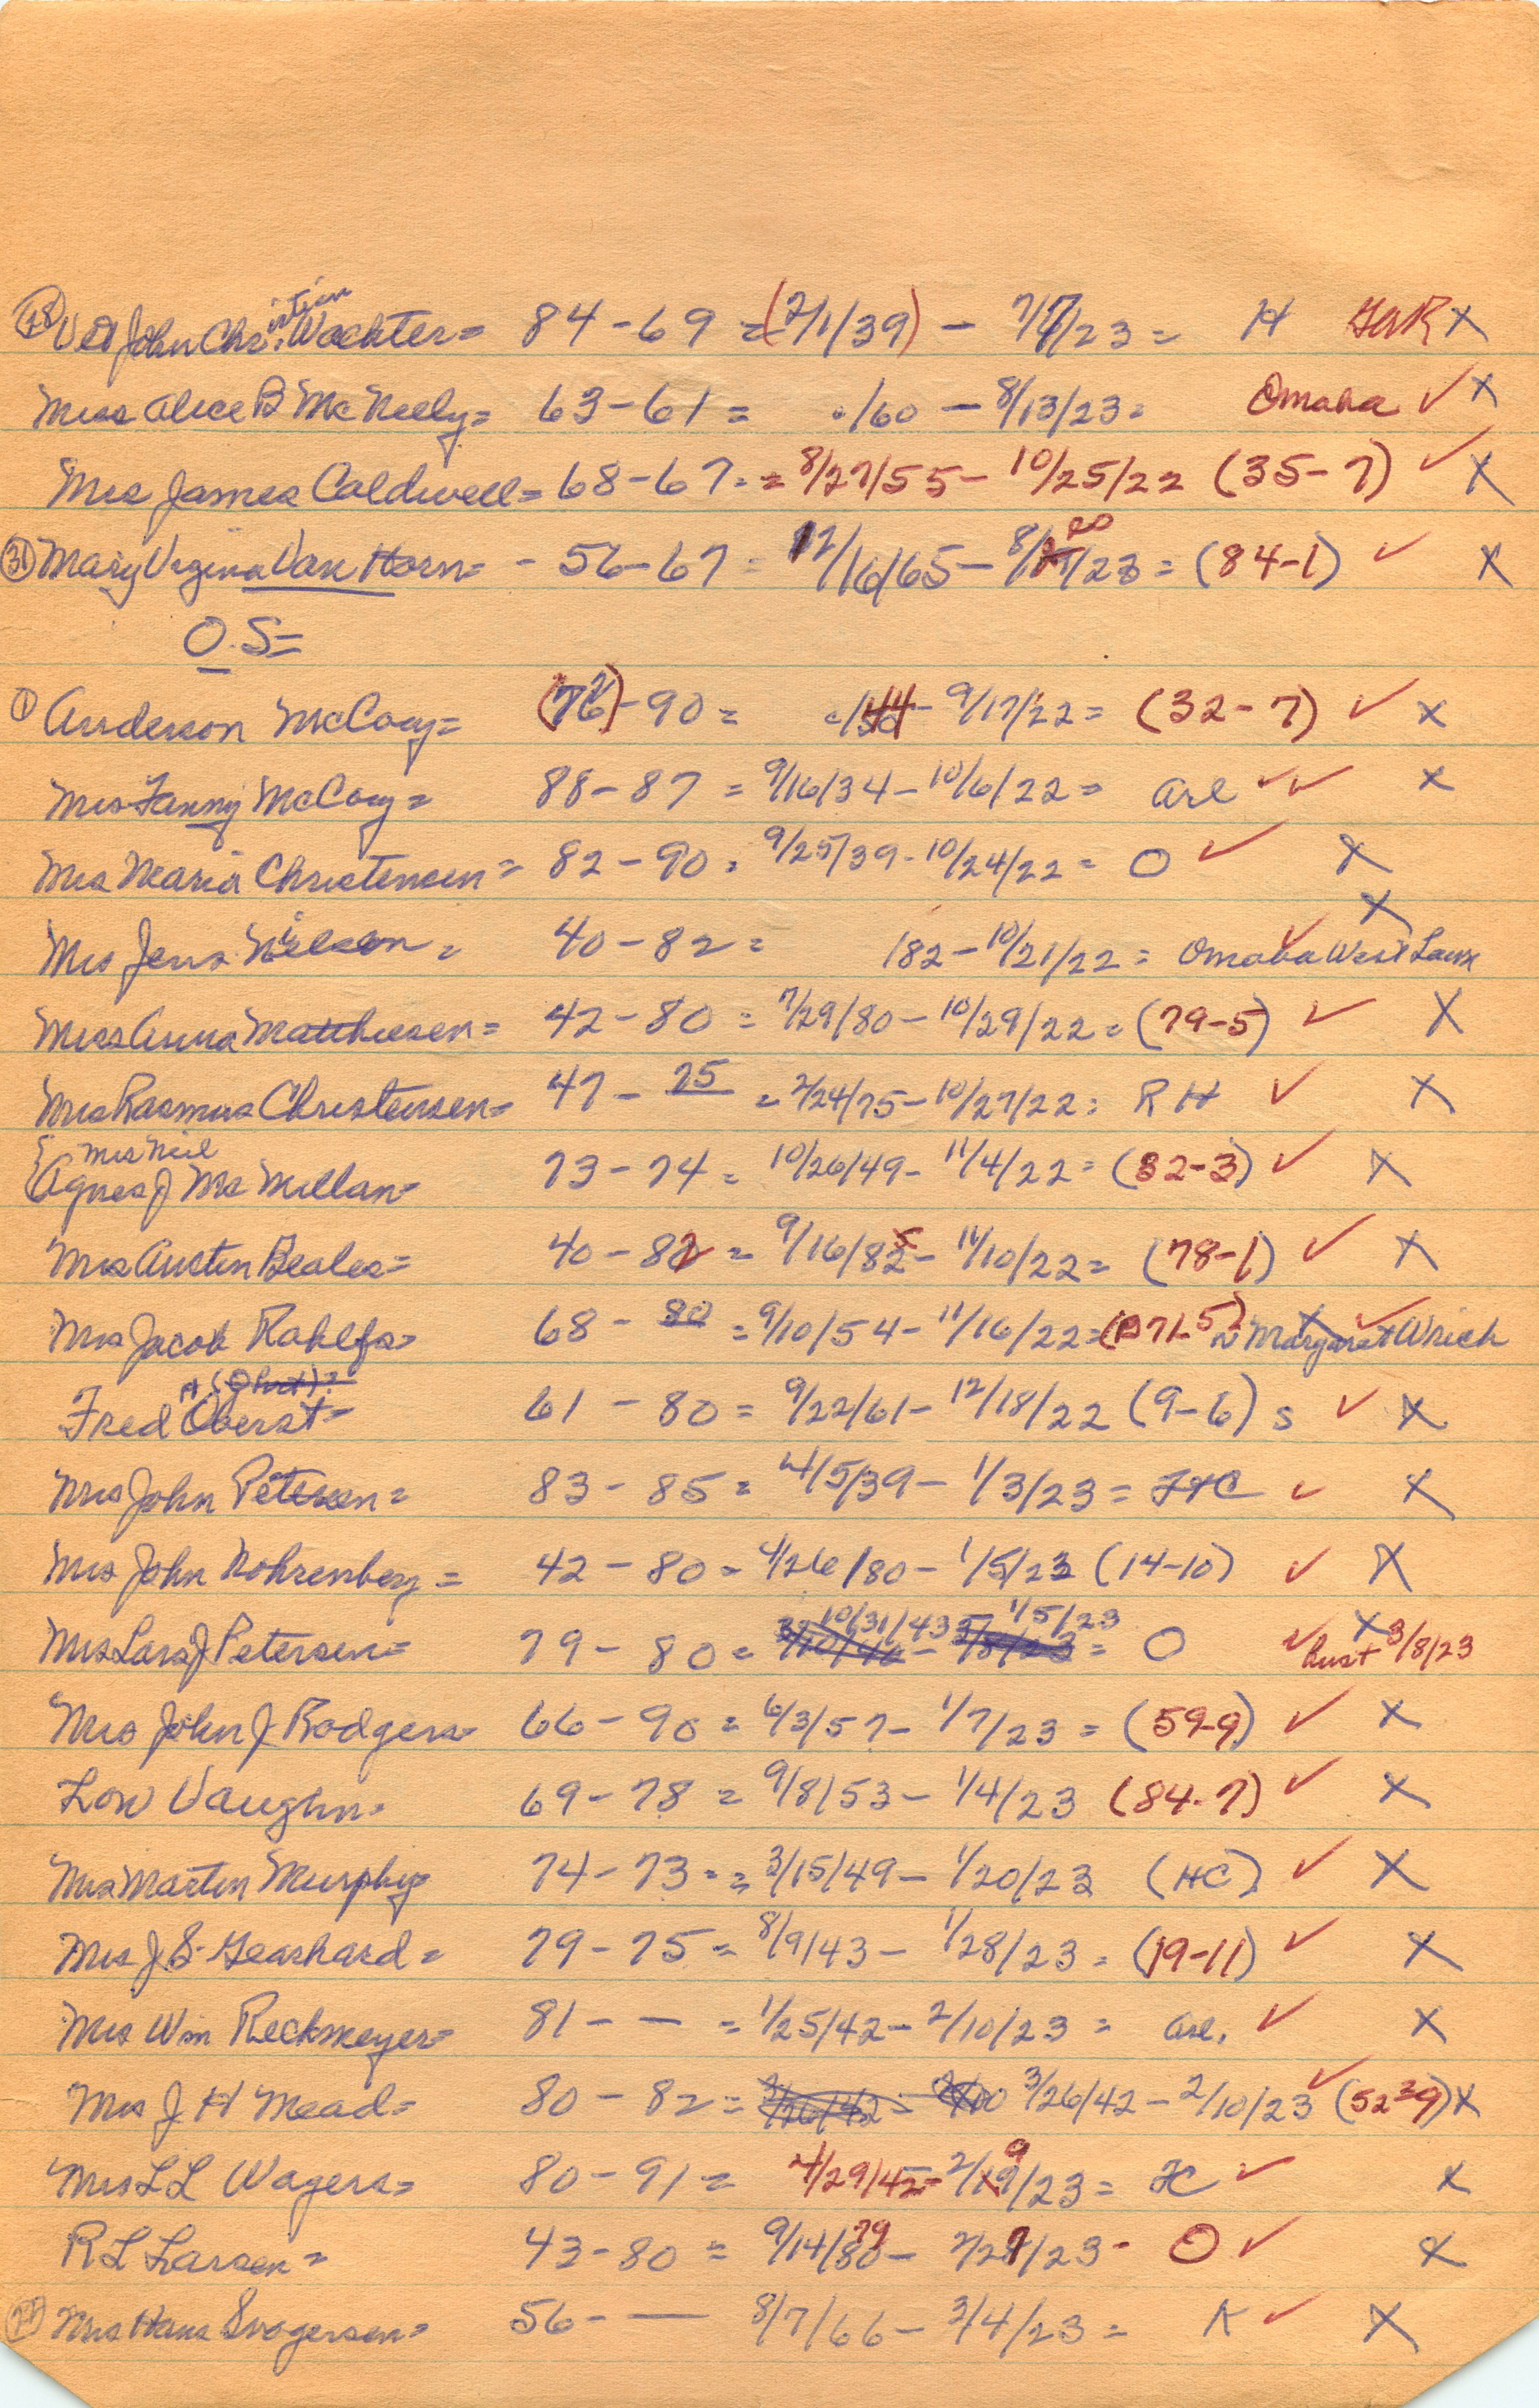 (48) Vet John Christian Wachter = 84-69 = (2/1/39) - 7/7/23 = H GAR X
Miss Alice B McNeely = 63-61 = ./60 - 8/13/23 = Omaha ✓ X
Mrs James Caldwell = 68-67 = 8/27/55 - 10/25/22 (35-7) ✓ X
(31) Mary Virgina Van Horn = - 56-67 = 12/16/65 - 8/20/23 = (84-1) ✓ X
O.S=
(1) Anderson McCoy = -90 = 9/17/22 = (32-7) ✓ X
Mrs Fanny McCoy = 88-87 = 9/16/34 - 10/6/22 = Arl ✓✓ X
Mrs Maria Christensen = 82-90 = 9/25/39 - 10/24/22 = O ✓ X
Mrs Jens Nielsen = 40-82 = 182 - 10/21/22 = Omaha West Lawn ✓ X
Miss Anna Matthiesen = 42-80 = 7/29/80 - 10/29/22 = (79-5) ✓ X
Mrs Rasmus Christensen = 47 - 75 = 2/24/75 - 10/27/22 = RH ✓ X
Mrs Neil
Agnes J McMillan = 73-74 = 10/26/49 - 11/4/22 = (32-3) ✓ X
Mrs Austin Beales = 40-82 = 9/16/82 - 11/10/22 = (78-1) ✓ X
Mrs Jacob Rahlfs = 68 - 80 = 9/10/54 - 11/16/22 = (71-5) Margaret Wrich ✓ X
Fred Oberst = 61 - 80 = 9/22/61 - 12/18/22 (9-6) s ✓ X
Mrs John Petersen = 83 - 85 = 4/5/39 - 1/3/23 = FC ✓ X
Mrs John Rohrenberg = 42 - 80 = 4/26/80 - 1/5/23 (14-10) ✓ X
10/31/43 1/5/23
Mrs Lars J Petersen = 79 - 80 = 3/10/40 - 3/8/23 = O ✓ X Rust 3/8/23
Mrs John J. Rodgers = 66-90 = 6/3/57 - 1/7/23 = (59-9) ✓ X
Low Vaughn = 69-78 = 9/8/53 - 1/4/23 (84-7) ✓ X
Mrs Martin Murphy = 74-73 = = 3/15/49 - 1/20/23 (HC) ✓ X
Mrs J.S. Gearhard = 79-75 = 8/9/43 - 1/28/23 = (19-11) ✓ X
Mrs Wm Reckmeyer = 81 - — = 1/25/42 - 2/10/23 = Arl. ✓ X
Mrs J H Mead = 80 - 82 = 3/26/42 - 3/26/42 - 2/10/23 ✓ (52-9) X
Mrs LL Wagers = 80-91 = 4/29/42 - 2/19/23 = FC ✓ X
R L Larsen = 43-80 = 9/14/79 - 2/27/23 - O ✓ X
Mrs Hans Svogerson = 56 - — 8/7/66 - 3/4/23 = K ✓ X